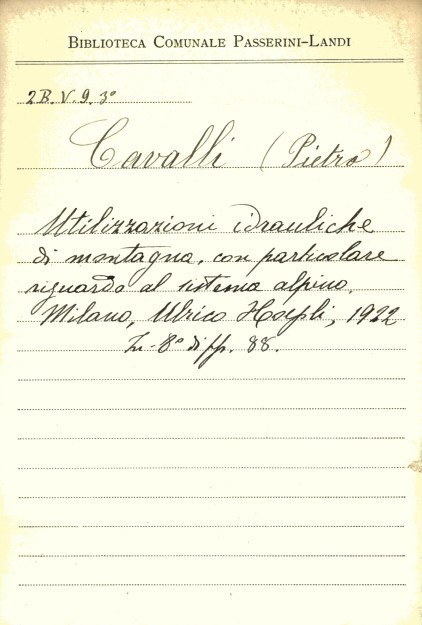 BIBLIOTECA COMUNALE PASSERINI-LANDI
2B.V.9.3°
Cavalli (Pietro)
Utilizzazioni idrauliche
di montagna, con particolare
riguardo al sistema alpino.
Milano, Ulrico Hoepli, 1922
In-8° di pp. 88.